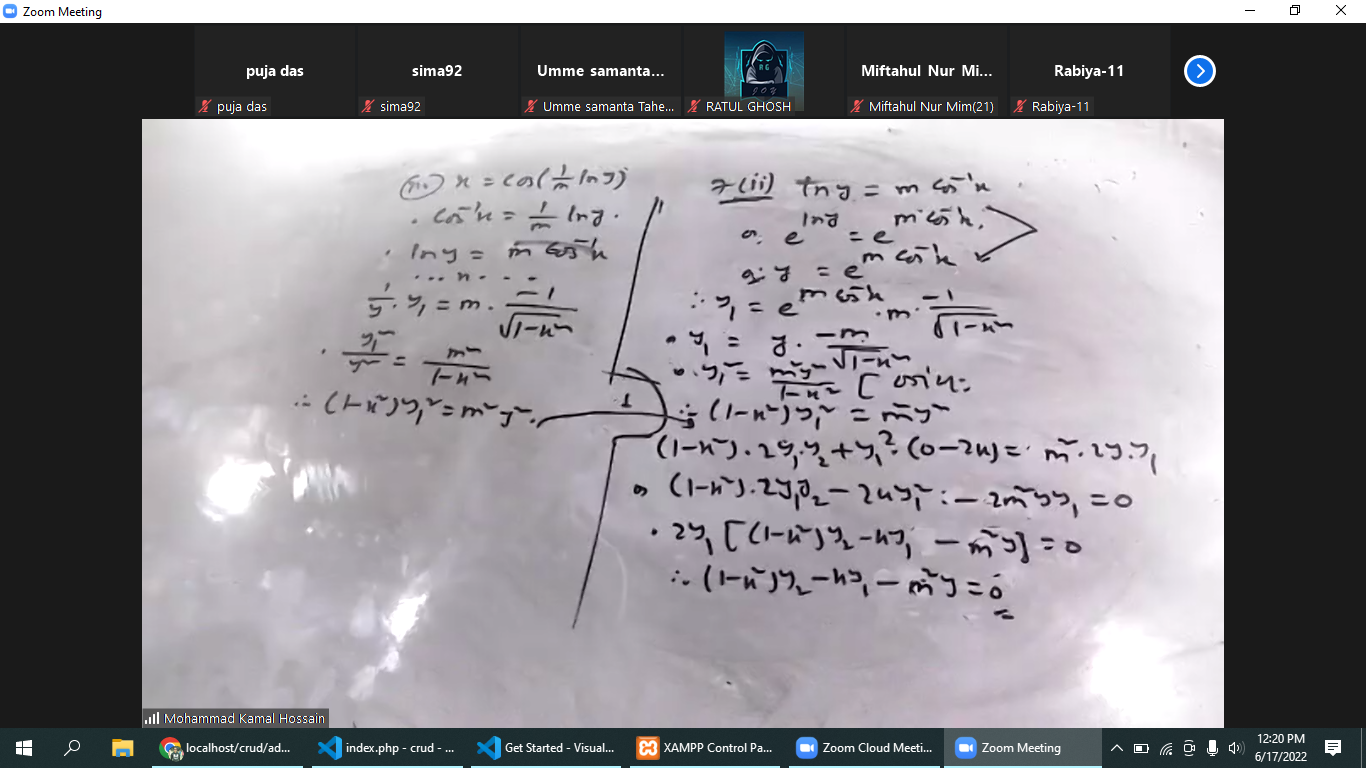 Zoom Meeting
puja das
sima92
Umme samanta...
Miftahul Nur Mi...
Rabiya-11
puja das
sima92
Umme samanta Tahe...
RG
JOY
RATUL GHOSH
Miftahul Nur Mim(21)
Rabiya-11
x = cos(1/m ln y)
cos⁻¹x = 1/m ln y.
ln y = m cos⁻¹x
1/y · y₁ = m · -1/√1-x²
y₁²/y² = m²/1-x²
∴ (1-x²)y₁² = m²y².
1
7(ii) ln y = m cos⁻¹x
e^ln y = e^m cos⁻¹x
y = e^m cos⁻¹x
∴ y₁ = e^m cos⁻¹x · m · -1/√1-x²
y₁ = y · -m/√1-x²
y₁² = m²y²/1-x²
∴ (1-x²)y₁² = m²y²
(1-x²)·2y₁·y₂+y₁²·(0-2x) = m²·2y·y₁
(1-x²)·2y₁y₂ - 2xy₁² - 2m²yy₁ = 0
2y₁[(1-x²)y₂-xy₁ - m²y] = 0
∴ (1-x²)y₂-xy₁ - m²y = 0
Mohammad Kamal Hossain
localhost/crud/ad...
index.php - crud - ...
Get Started - Visual...
XAMPP Control Pa...
Zoom Cloud Meeti...
Zoom Meeting
12:20 PM
6/17/2022